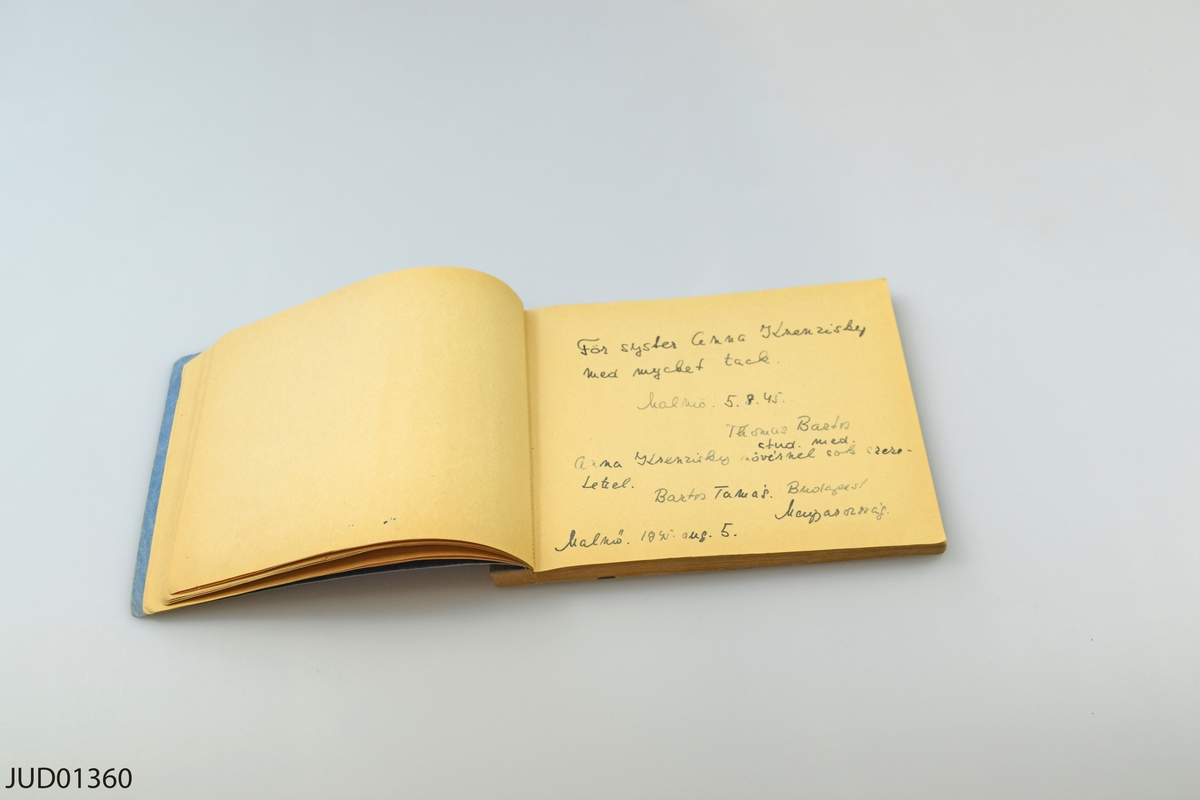 För syster Anna Krenzisky
med mycket tack.
Malmö. 5.8.45.
Thomas Bartos
stud. med.
Anna Krenzisky növérnek sok szere-
tettel.
Bartos Tamás. Budapest
Magyarország.
Malmö. 1945. aug. 5.
JUD01360